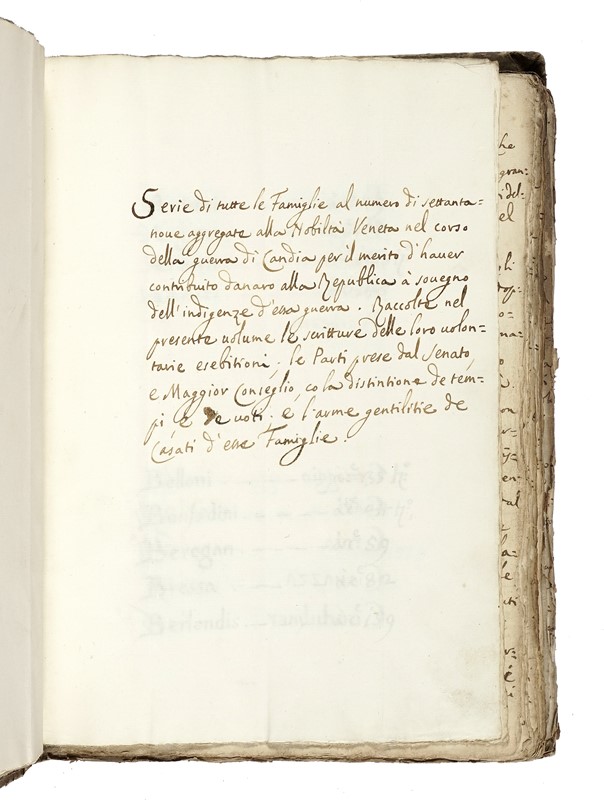 Serie di tutte le Famiglie al numero di settanta=
noue aggregate alla Nobiltà Veneta nel corso
della guerra di Candia per il merito d'hauer
contribuito danaro alla Republica à souegno
dell'indigenze d'essa guerra. Raccolte nel
presente uolume le scritture delle loro uolon-
tarie esebitioni; le Parti prese dal Senato,
e Maggior Conseglio, co la distintione de tem=
pi e de uoti. e l'arme gentilitie de
Casati d'esse Famiglie.